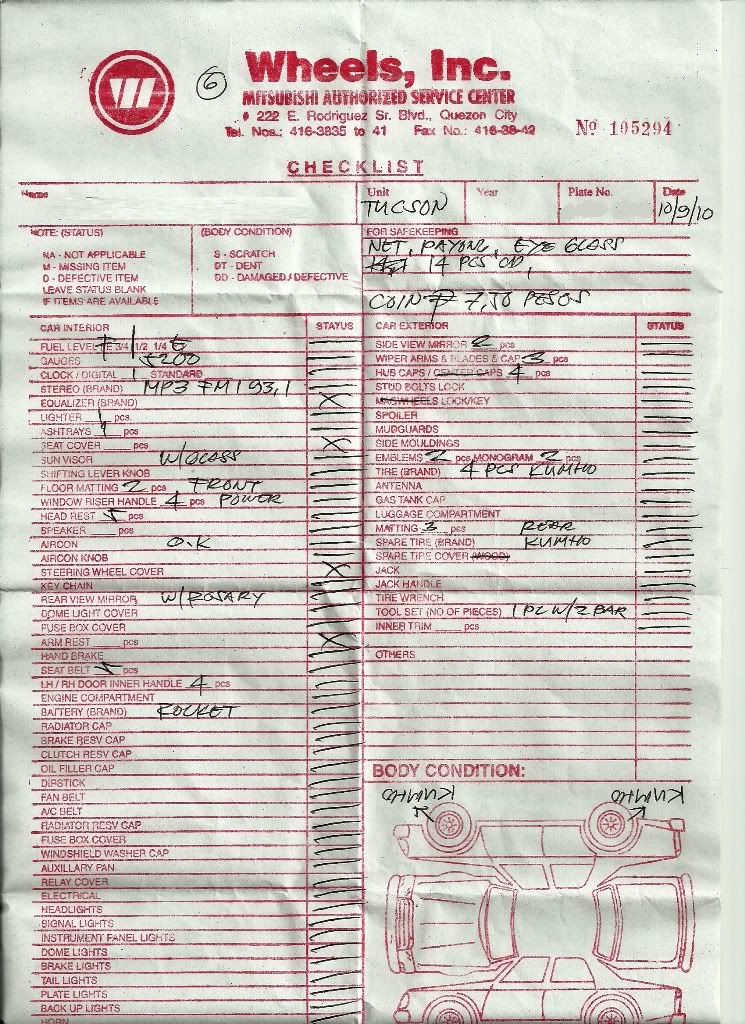 6
Wheels, Inc.
MITSUBISHI AUTHORIZED SERVICE CENTER
# 222 E. Rodriguez Sr. Blvd., Quezon City
Tel. Nos.: 416-3835 to 41 Fax No.: 416-38-42
Nº 195294
CHECKLIST
Name
Unit Year Plate No. Date
TUCSON 10/9/10
NOTE: (STATUS) (BODY CONDITION) FOR SAFEKEEPING
NET, PAYONG, EYE GLASS
NA - NOT APPLICABLE S - SCRATCH 14 PCS CD,
M - MISSING ITEM DT - DENT
D - DEFECTIVE ITEM DD - DAMAGED / DEFECTIVE
LEAVE STATUS BLANK
IF ITEMS ARE AVAILABLE
COIN ₱ 7,50 PESOS
CAR INTERIOR STATUS
FUEL LEVEL F 3/4 1/2 1/4 E
GAUGES
CLOCK / DIGITAL 1 STANDARD
STEREO (BRAND) MP3 FM1 93,1
EQUALIZER (BRAND) X
LIGHTER 1 pcs.
ASHTRAYS 1 pcs
SEAT COVER pcs X
SUN VISOR W/GLASS
SHIFTING LEVER KNOB
FLOOR MATTING 2 pcs FRONT
WINDOW RISER HANDLE 4 pcs POWER
HEAD REST 5 pcs
SPEAKER pcs
AIRCON O.K
AIRCON KNOB
STEERING WHEEL COVER X
KEY CHAIN
REAR VIEW MIRROR W/ROSARY
DOME LIGHT COVER
FUSE BOX COVER
ARM REST pcs X
HAND BRAKE
SEAT BELT 5 pcs
LH / RH DOOR INNER HANDLE 4 pcs
ENGINE COMPARTMENT
BATTERY (BRAND) ROCKET
RADIATOR CAP
BRAKE RESV CAP
CLUTCH RESV CAP
OIL FILLER CAP
DIPSTICK
FAN BELT
A/C BELT
RADIATOR RESV CAP
FUSE BOX COVER
WINDSHIELD WASHER CAP
AUXILLARY FAN
RELAY COVER
ELECTRICAL
HEADLIGHTS
SIGNAL LIGHTS
INSTRUMENT PANEL LIGHTS
DOME LIGHTS
BRAKE LIGHTS
TAIL LIGHTS
PLATE LIGHTS
BACK UP LIGHTS
HORN
CAR EXTERIOR STATUS
SIDE VIEW MIRROR 2 pcs
WIPER ARMS & BLADES & CAP 3 pcs
HUB CAPS / CENTER CAPS 4 pcs
STUD BOLTS LOCK
MAGWHEELS LOCK/KEY
SPOILER
MUDGUARDS
SIDE MOULDINGS
EMBLEMS 2 pcs MONOGRAM 2 pcs
TIRE (BRAND) 4 PCS KUMHO
ANTENNA
GAS TANK CAP
LUGGAGE COMPARTMENT
MATTING 3 pcs REAR
SPARE TIRE (BRAND) KUMHO
SPARE TIRE COVER (WOOD)
JACK
JACK HANDLE
TIRE WRENCH
TOOL SET (NO OF PIECES) 1 PC W/2 BAR
INNER TRIM pcs
OTHERS
BODY CONDITION:
KUMHO KUMHO